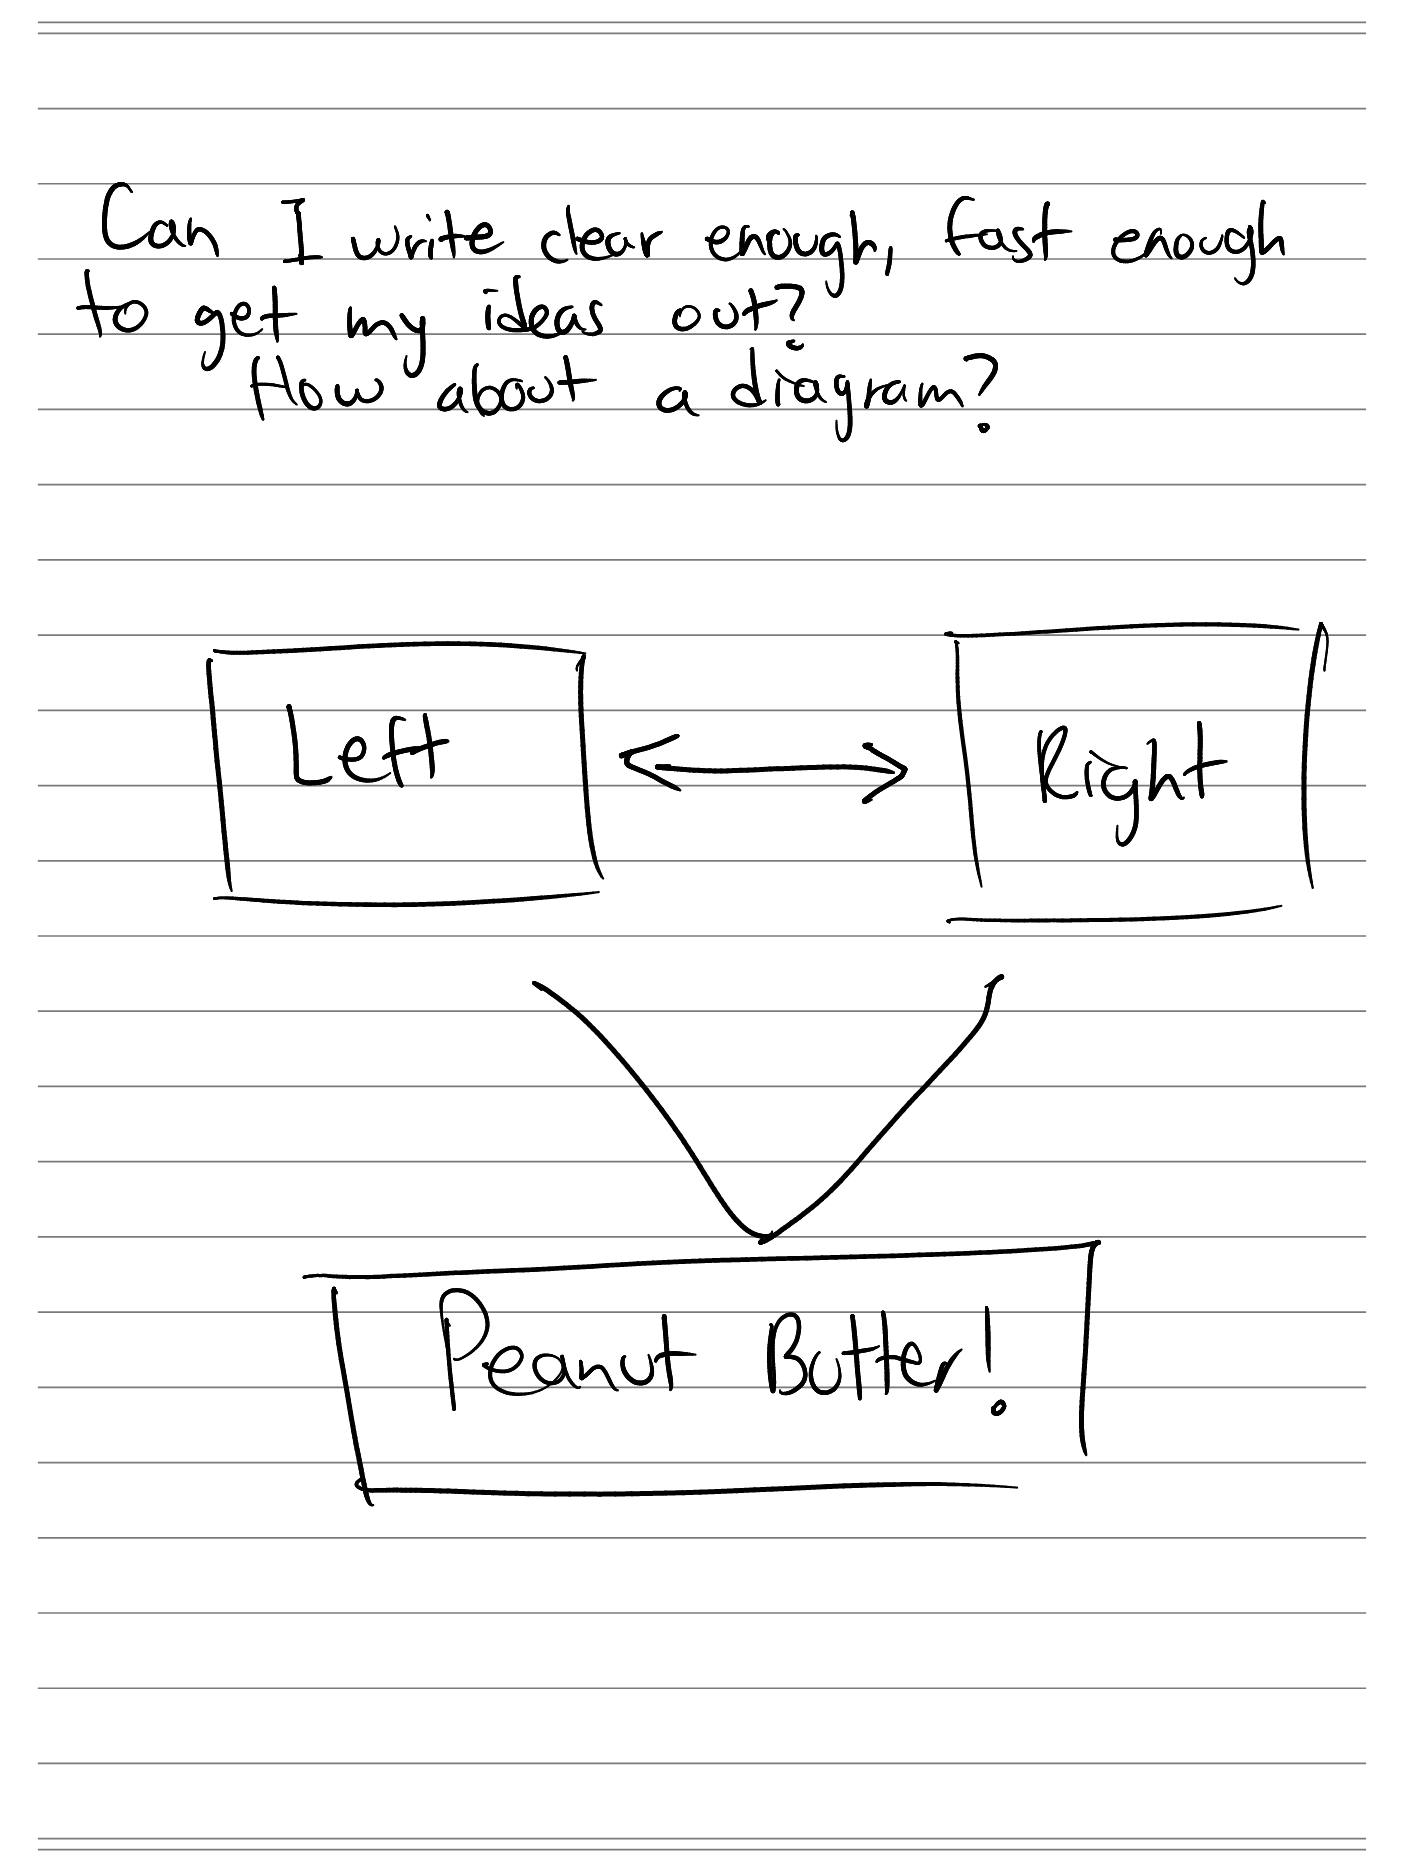 Can I write clear enough, fast enough
to get my ideas out?
How about a diagram?
Left
Right
Peanut Butter!